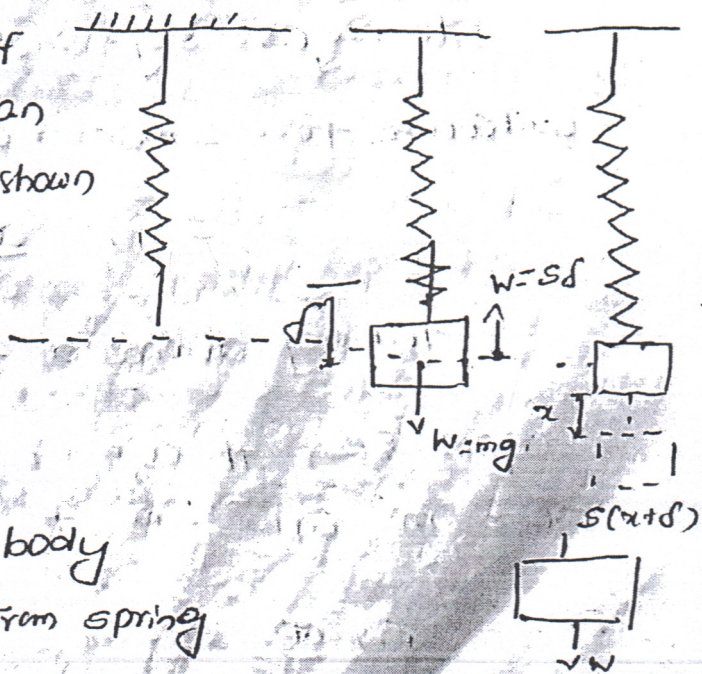 f
an
shown
W=Sδ
W=mg
x
S(x+δ)
body
from spring
W